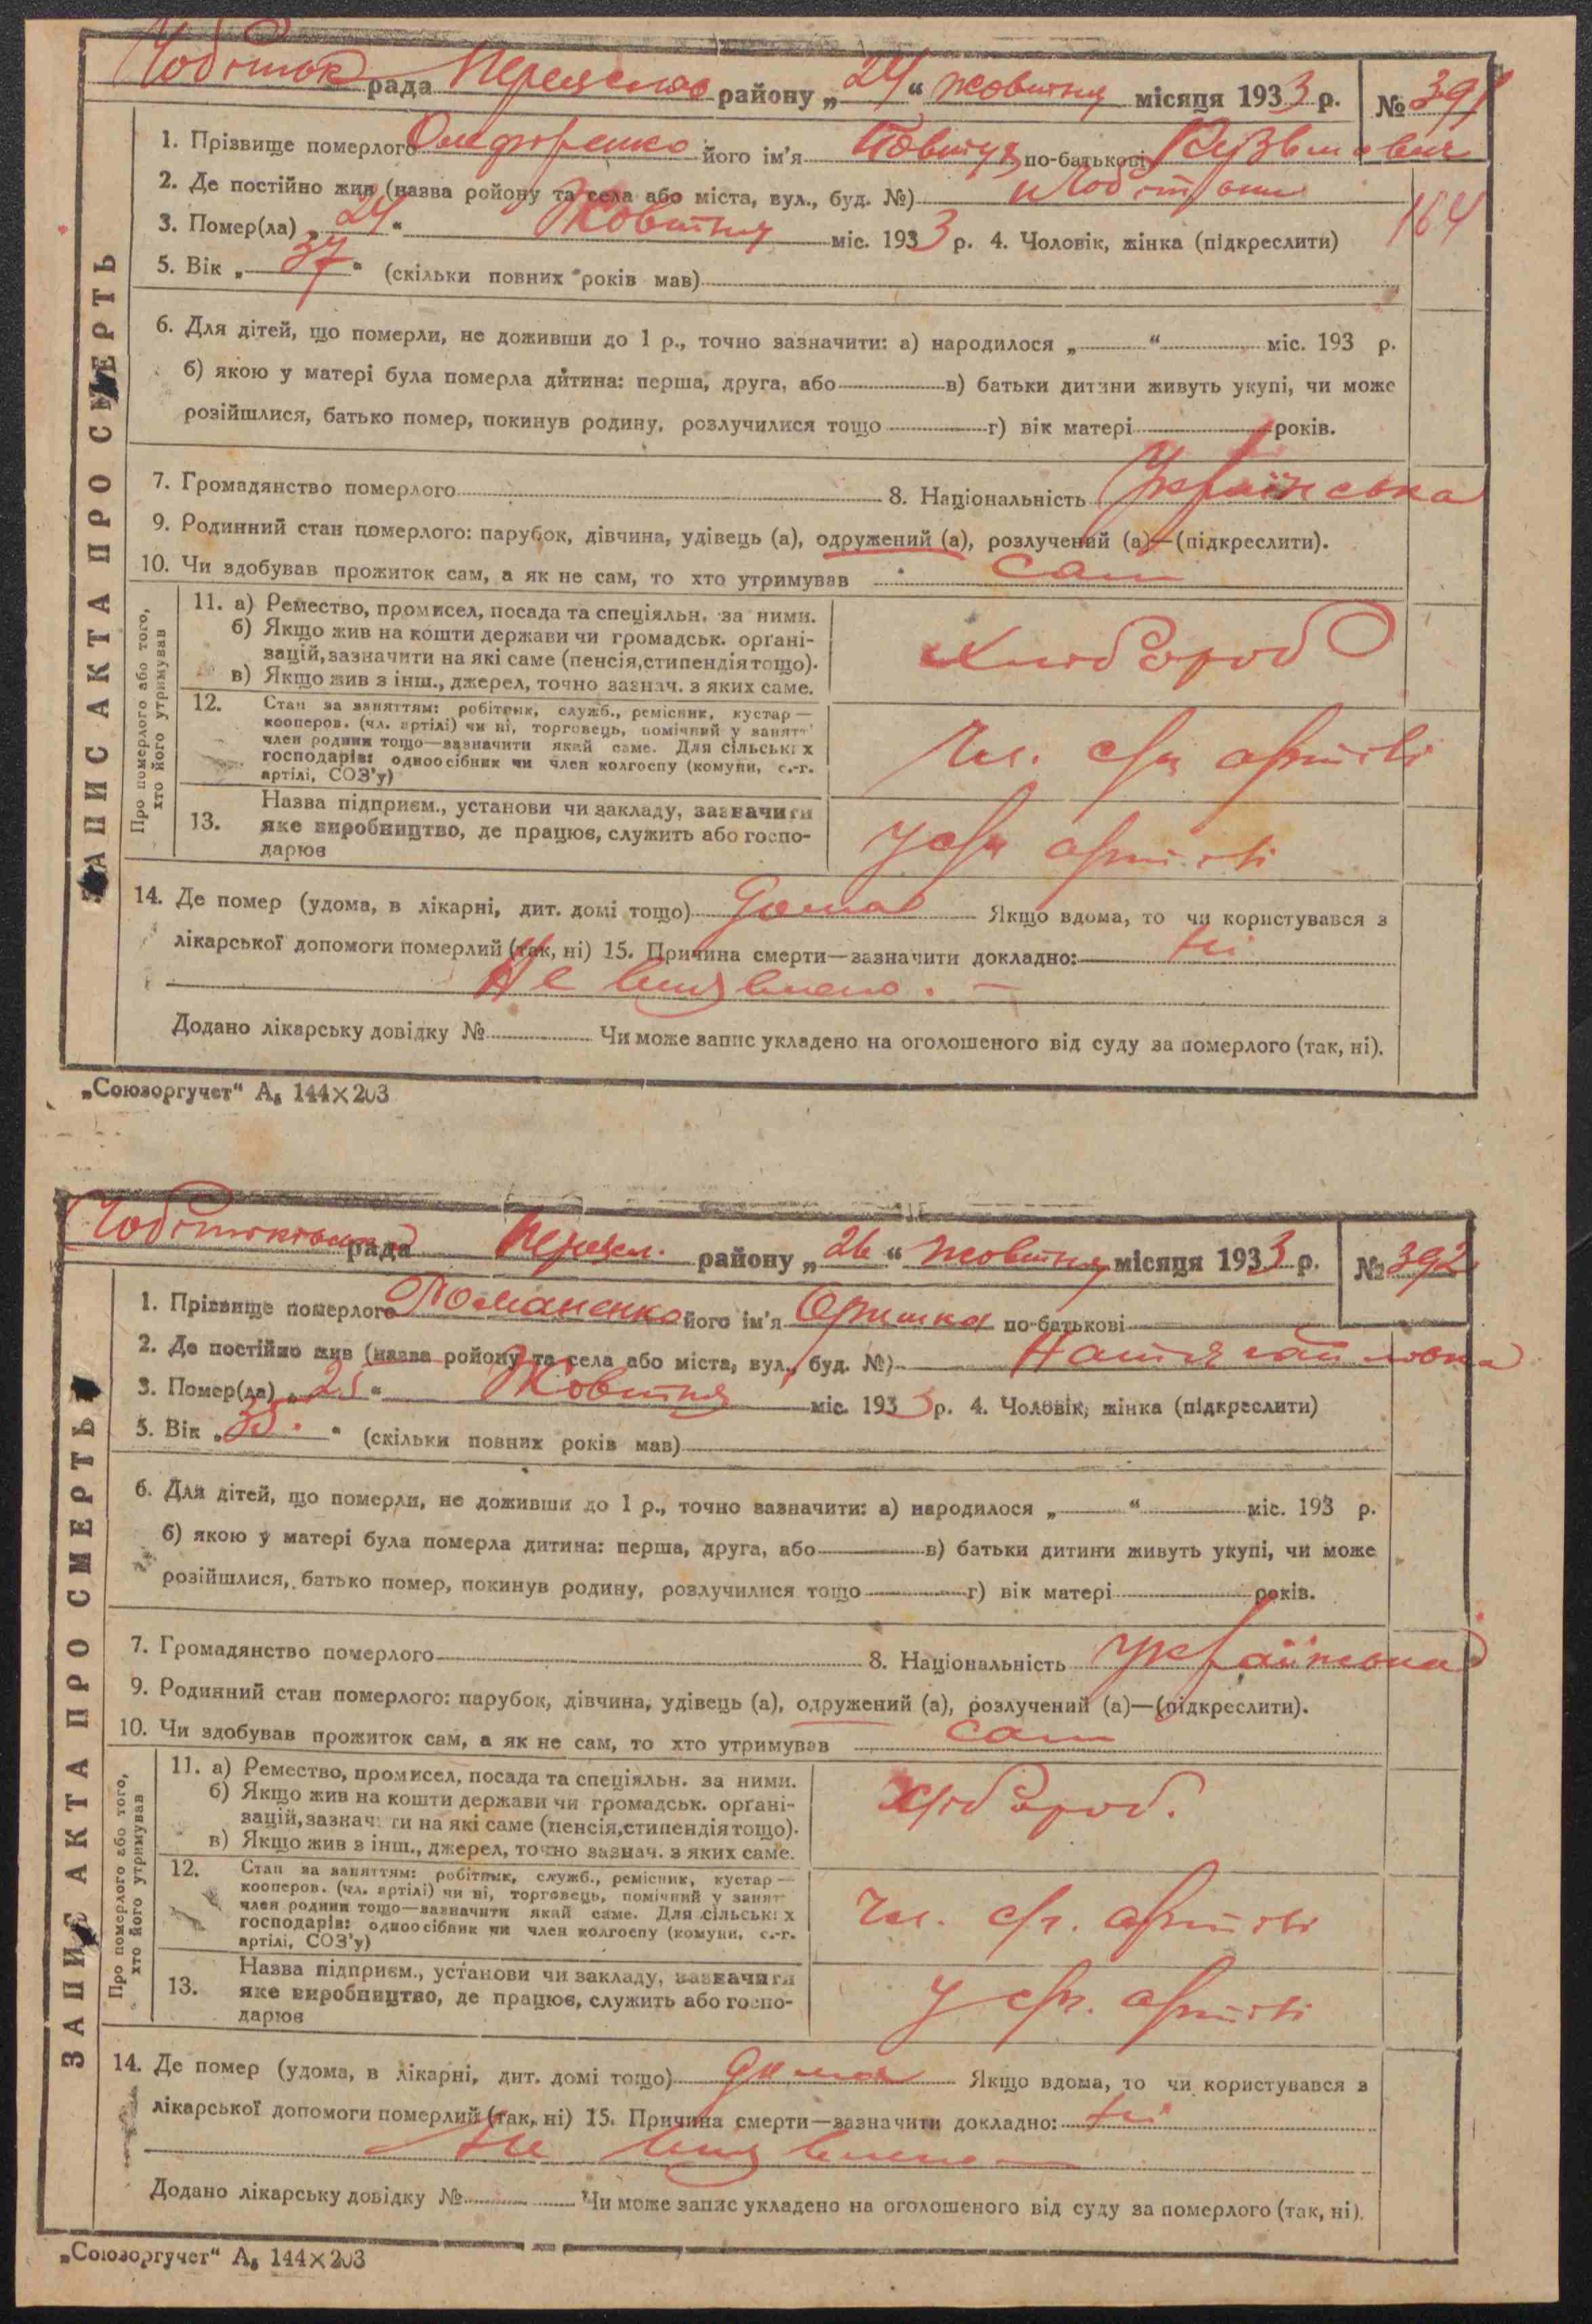 рада район у „24“ жовтня місяця 1933 р. № 391
1. Прізвище померлого його ім'я по-батькові
2. Де постійно жив (назва ройону та села або міста, вул., буд. №)
164
3. Помер(ла) „24“ Жовтня міс. 1933 р. 4. Чоловік, жінка (підкреслити)
5. Вік „37“ (скільки повних років мав)
6. Для дітей, що померли, не доживши до 1 р., точно зазначити: а) народилося „ “ міс. 193 р.
б) якою у матері була померла дитина: перша, друга, або в) батьки дитини живуть укупі, чи може
розійшлися, батько помер, покинув родину, розлучилися тощо г) вік матері років.
7. Громадянство померлого 8. Національність Українська
9. Родинний стан померлого: парубок, дівчина, удівець (а), одружений (а), розлучений (а)—(підкреслити).
10. Чи здобував прожиток сам, а як не сам, то хто утримував сам
Про померлого або того,
хто його утримував
11. а) Ремество, промисел, посада та спеціяльн. за ними.
б) Якщо жив на кошти держави чи громадськ. органі-
зацій, зазначити на які саме (пенсія, стипендія тощо).
в) Якщо жив з інш., джерел, точно зазнач. з яких саме.
Хлібороб
12. Стан за заняттям: робітник, служб., ремісник, кустар—
кооперов. (чл. артілі) чи ні, торговець, помічний у занятт
член родини тощо—зазначити який саме. Для сільських
господарів: одноосібник чи член колгоспу (комуни, с.-г.
артілі, СОЗ'у)
Чл. с/г артілі
13. Назва підприєм., установи чи закладу, зазначити
яке виробництво, де працює, служить або госпо-
дарює
У с/г артілі
14. Де помер (удома, в лікарні, дит. домі тощо) дома Якщо вдома, то чи користувався з
лікарської допомоги померлий (так, ні) 15. Причина смерти—зазначити докладно: ні
Не виявлено.
Додано лікарську довідку № Чи може запис укладено на оголошеного від суду за померлого (так, ні).
ЗАПИС АКТА ПРО СМЕРТЬ
„Союзоргучет“ А₅ 144×203
рада район у „26“ жовтня місяця 1933 р. № 392
1. Прізвище померлого Романенко його ім'я Оришка по-батькові
2. Де постійно жив (назва ройону та села або міста, вул., буд. №)
3. Помер(ла) „25“ Жовтня міс. 1933 р. 4. Чоловік, жінка (підкреслити)
5. Вік „35“ (скільки повних років мав)
6. Для дітей, що померли, не доживши до 1 р., точно зазначити: а) народилося „ “ міс. 193 р.
б) якою у матері була померла дитина: перша, друга, або в) батьки дитини живуть укупі, чи може
розійшлися, батько помер, покинув родину, розлучилися тощо г) вік матері років.
7. Громадянство померлого 8. Національність Українська
9. Родинний стан померлого: парубок, дівчина, удівець (а), одружений (а), розлучений (а)—(підкреслити).
10. Чи здобував прожиток сам, а як не сам, то хто утримував сам
Про померлого або того,
хто його утримував
11. а) Ремество, промисел, посада та спеціяльн. за ними.
б) Якщо жив на кошти держави чи громадськ. органі-
зацій, зазначити на які саме (пенсія, стипендія тощо).
в) Якщо жив з інш., джерел, точно зазнач. з яких саме.
Хлібороб.
12. Стан за заняттям: робітник, служб., ремісник, кустар—
кооперов. (чл. артілі) чи ні, торговець, помічний у занят
член родини тощо—зазначити який саме. Для сільських
господарів: одноосібник чи член колгоспу (комуни, с.-г.
артілі, СОЗ'у)
Чл. с/г. артілі
13. Назва підприєм., установи чи закладу, зазначити
яке виробництво, де працює, служить або госпо-
дарює
У с/г. артілі
14. Де помер (удома, в лікарні, дит. домі тощо) дома Якщо вдома, то чи користувався з
лікарської допомоги померлий (так, ні) 15. Причина смерти—зазначити докладно: ні
Не виявлено
Додано лікарську довідку № Чи може запис укладено на оголошеного від суду за померлого (так, ні).
ЗАПИС АКТА ПРО СМЕРТЬ
„Союзоргучет“ А₅ 144×203